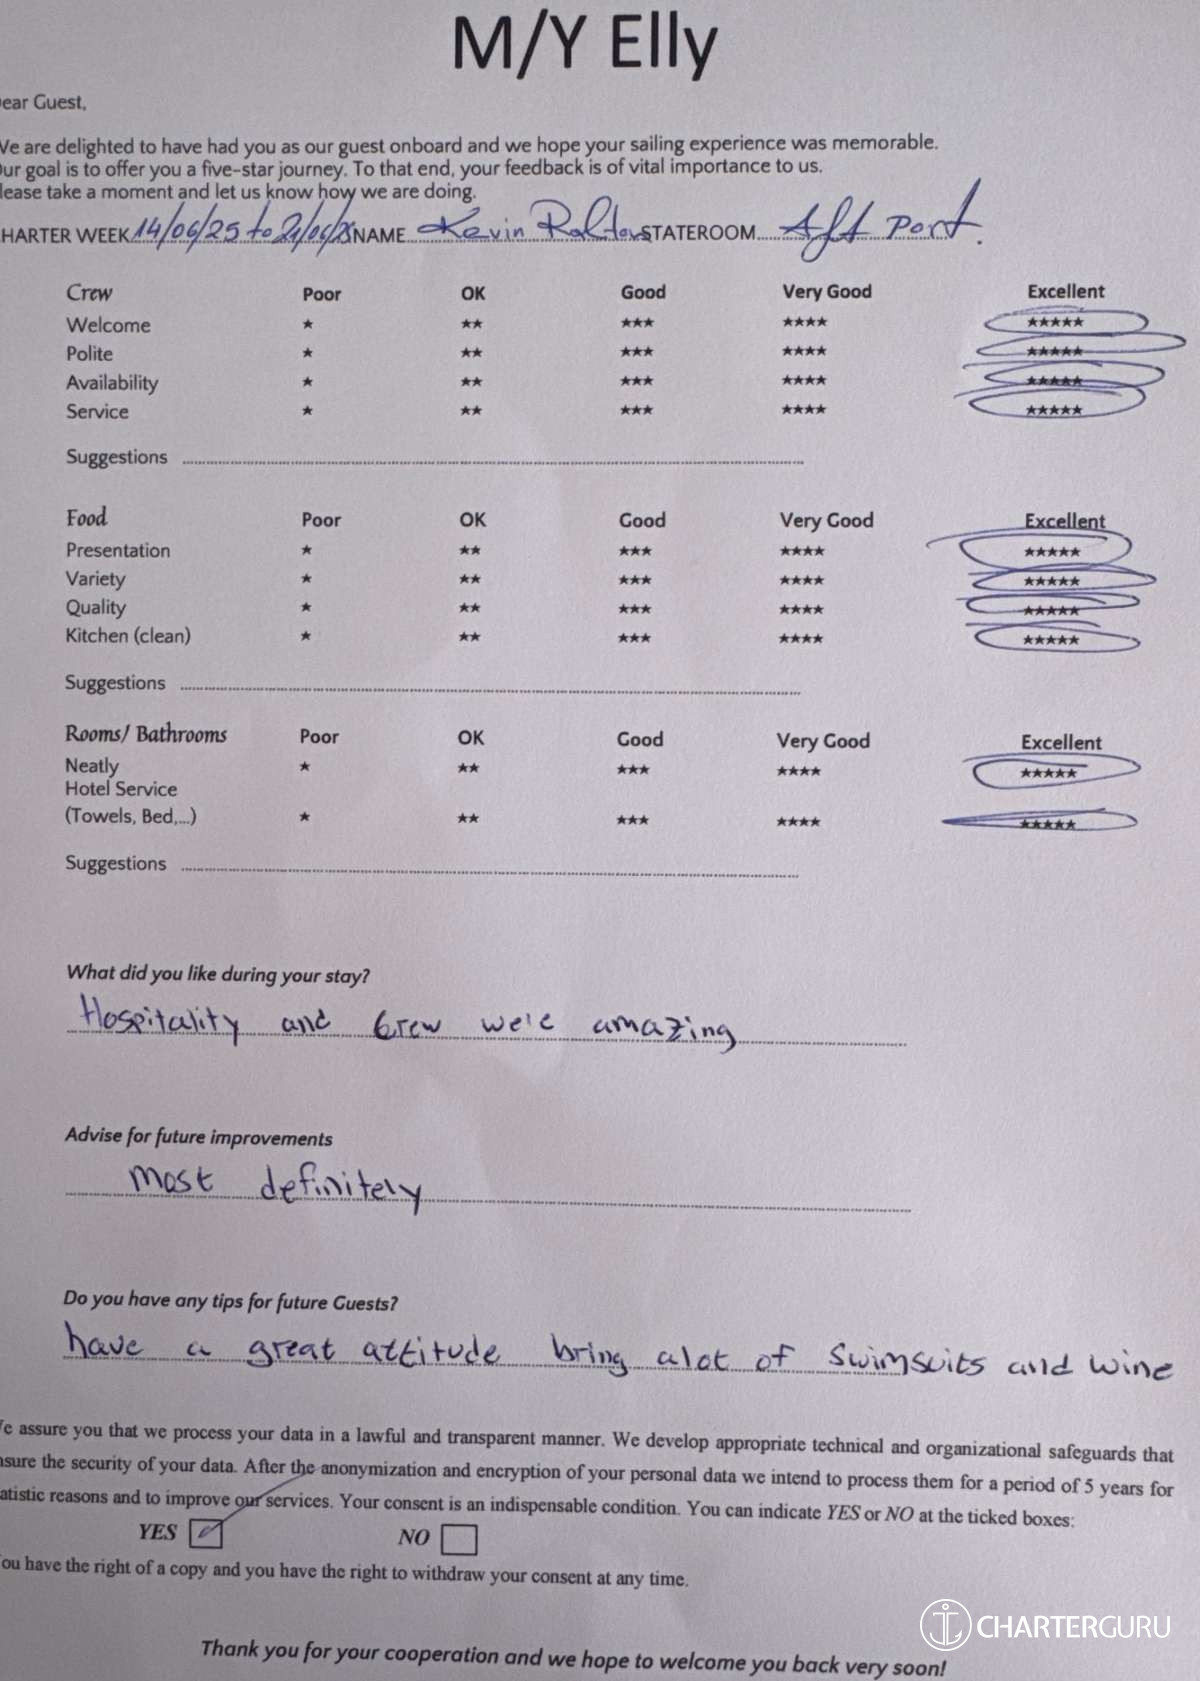 M/Y Elly
ear Guest,
We are delighted to have had you as our guest onboard and we hope your sailing experience was memorable.
ur goal is to offer you a five-star journey. To that end, your feedback is of vital importance to us.
lease take a moment and let us know how we are doing.
HARTER WEEK 14/06/25 to 21/06/25 NAME Kevin STATEROOM Aft Port.
Crew Poor OK Good Very Good Excellent
Welcome ★ ★★ ★★★ ★★★★ ★★★★★
Polite ★ ★★ ★★★ ★★★★ ★★★★★
Availability ★ ★★ ★★★ ★★★★ ★★★★★
Service ★ ★★ ★★★ ★★★★ ★★★★★
Suggestions
Food Poor OK Good Very Good Excellent
Presentation ★ ★★ ★★★ ★★★★ ★★★★★
Variety ★ ★★ ★★★ ★★★★ ★★★★★
Quality ★ ★★ ★★★ ★★★★ ★★★★★
Kitchen (clean) ★ ★★ ★★★ ★★★★ ★★★★★
Suggestions
Rooms/ Bathrooms Poor OK Good Very Good Excellent
Neatly ★ ★★ ★★★ ★★★★ ★★★★★
Hotel Service
(Towels, Bed,...) ★ ★★ ★★★ ★★★★ ★★★★★
Suggestions
What did you like during your stay?
Hospitality and Crew were amazing
Advise for future improvements
most definitely
Do you have any tips for future Guests?
have a great attitude bring alot of swimsuits and wine
e assure you that we process your data in a lawful and transparent manner. We develop appropriate technical and organizational safeguards that
nsure the security of your data. After the anonymization and encryption of your personal data we intend to process them for a period of 5 years for
atistic reasons and to improve our services. Your consent is an indispensable condition. You can indicate YES or NO at the ticked boxes:
YES NO
ou have the right of a copy and you have the right to withdraw your consent at any time.
CHARTERGURU
Thank you for your cooperation and we hope to welcome you back very soon!